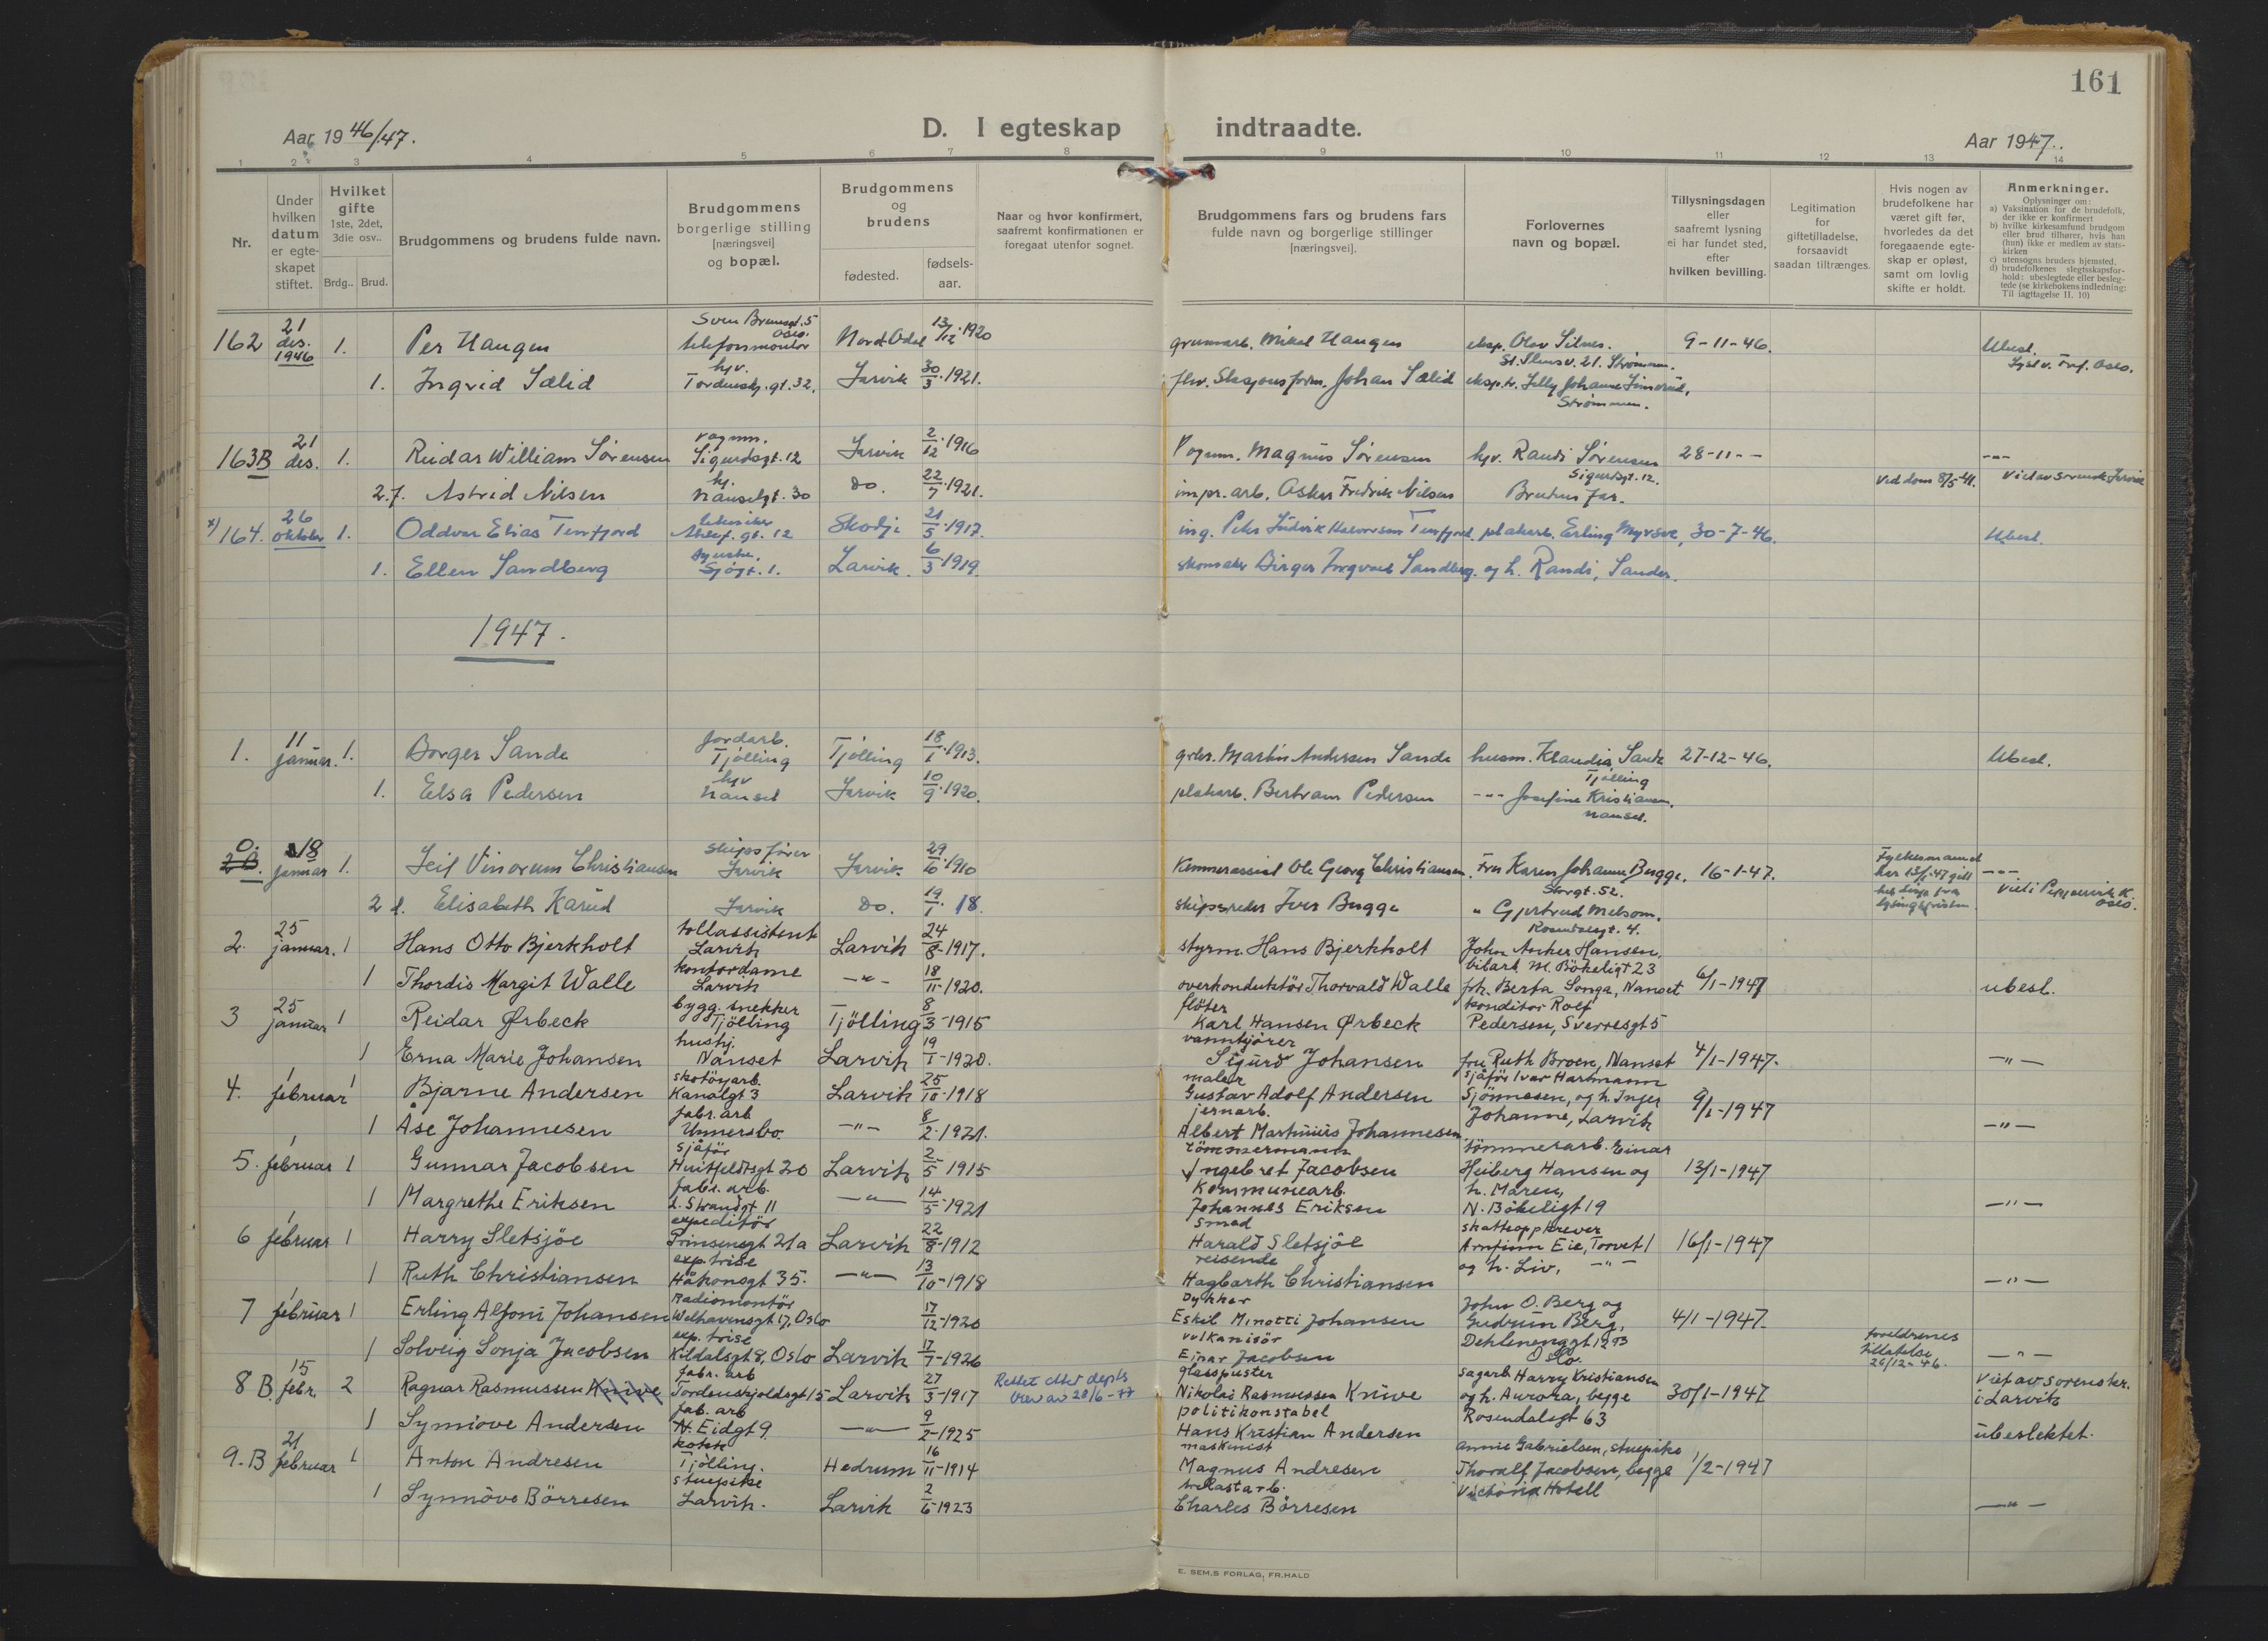 161
Aar 1946/47.
D. I egteskap indtraadte.
Aar 1947.
1 2 3 4 5 6 7 8 9 10 11 12 13 14
Nr.
Under hvilken datum er egte-skapet stiftet.
Hvilket gifte
1ste, 2det, 3die osv..
Brdg.. Brud.
Brudgommens og brudens fulde navn.
Brudgommens borgerlige stilling [næringsvei] og bopæl.
Brudgommens og brudens
fødested.
fødsels-aar.
Naar og hvor konfirmert, saafremt konfirmationen er foregaat utenfor sognet.
Brudgommens fars og brudens fars fulde navn og borgerlige stillinger [næringsvei].
Forlovernes navn og bopæl.
Tillysningsdagen eller saafremt lysning ei har fundet sted, efter hvilken bevilling.
Legitimation for giftetilladelse, forsaavidt saadan tiltrænges.
Hvis nogen av brudefolkene har været gift før, hvorledes da det foregaaende egte-skap er opløst, samt om lovlig skifte er holdt.
Anmerkninger.
Oplysninger om:
a) Vaksination for de brudefolk, der ikke er konfirmert
b) hvilke kirkesamfund brudgom eller brud tilhører, hvis han (hun) ikke er medlem av stats-kirken
c) utensogns bruders hjemsted.
d) brudefolkenes slegtsskapsfor-hold: ubeslegtede eller besleg-tede (se kirkebokens indledning: Til iagttagelse II. 10)
162 21 des. 1946 1. Per Haugen telefonmontör Oslo. Nord Odal 13/12-1920 Mikal Haugen eksp. Olav Silnes. 9-11-46. Ubesl.
1. Ingrid Sælid hjv. Tordenskj.gt. 32. Larvik 30/3-1921. Johan Sælid Strømmen.
163B 21 des. 1. Reidar William Sørensen vognm. Sigurdsgt. 12 Larvik 2/12-1916 Vognm. Magnus Sørensen hjv. Randi Sørensen Sigurdsgt. 12. 28-11-- -"-
2.f. Astrid Nilsen hj. Nansetgt. 30 do. 22/7-1921. Oskar Fredrik Nilsen Brudens far. Ved dom 8/5 41.
x) 164. 26 oktober 1. Oddvar Elias Tenfjord tekniker Skodje 21/5-1917. ing. Peter Ludvik Halvorsen Tenfjord plakarb. Erling Myrset, 30-7-46. Ubesl.
1. Ellen Sandberg syerske. Sjøgt. 1. Larvik. 6/3-1919. skomaker Birger Torgvald Sandberg. og h. Randi, Sander.
1947.
1. 11 januar. 1. Borger Sande jordarb. Tjölling Tjölling 18/1-1913. grbr. Martin Andersen Sande husm. Klaudia Sande Tjölling 27-12-46. Ubesl.
1. Elsa Pedersen hjv Nanset Larvik 10/9-1920. plakarb. Bertram Pedersen -"- Josefine Kristiansen. Nanset.
18 januar 1. Leif Vinorum Christiansen skipsfører Larvik Larvik 29/6-1910 Ole Georg Christiansen. Fru Karen Johanne Bugge. Storgt. 52. 16-1-47. -"-
2 f. Elisabeth Karud Larvik do. 19/1-18. skipsreder Iver Bugge " Gjertrud Melsom.
2. 25 januar. 1 Hans Otto Bjerkholt tollassistent Larvik Larvik 24/8-1917. styrm. Hans Bjerkholt John Anker Hansen, bilarb. M. Bökeligt 23
1 Thordis Margit Walle kontordame Larvik -"- 18/11-1920. overkonduktör Thorvald Walle frk. Berta Songa, Nanset 6/1-1947 ubesl.
3 25 januar 1 Reidar Ørbeck bygg.snekker Tjölling Tjölling 8/3-1915 flöter Karl Hansen Ørbeck konditor Rolf Pedersen, Sverresgt 5
1 Erna Marie Johansen hushj. Nanset Larvik 19/1-1920. vanntjører Sigurd Johansen fru Ruth Broen, Nanset 4/1-1947. -"-
4. 1 februar 1 Bjarne Andersen skotöyarb. Kanalgt 3 Larvik 25/10-1918 maler Gustav Adolf Andersen sjåför Ivar Hartmann Sjönnesen, og h. Inger
1 Åse Johannesen fabr.arb Unnersbo. -"- 8/2-1921. jernarb. Albert Martinius Johannesen. Johanne, Larvik 9/1-1947 -"-
5. 1 februar 1 Gunnar Jacobsen sjåför Huitfeldtsgt 20 Larvik 2/5-1915 tömmermann Ingebret Jacobsen tömmerarb. Einar Heiberg Hansen og 13/1-1947
1 Margrethe Eriksen fabr. arb. L. Strandgt 11 -"- 14/5-1921 Kommunearb. Johannes Eriksen h. Maren, N. Bökeligt 19 -"-
6 1 februar 1 Harry Sletsjöe expeditör Prinsensgt 21a Larvik 22/8-1912 smed Harald Sletsjöe skatteoppkrever Arnfinn Eie, Torvet 1 16/1-1947
1 Ruth Christiansen exp.trise Håkonsgt 35. -"- 13/10-1918 reisende Hagbarth Christiansen og h. Liv, -"- -"-
7 1 februar 1 Erling Alfoni Johansen Radiomontör Welhavensgt 17, Oslo 17/12-1920 Dykker Eskil Minotti Johansen John O. Berg og Gudrun Berg, 4/1-1947.
1 Solveig Sonja Jacobsen exp. trise Kildalsgt 8, Oslo Larvik 17/7-1926 vulkanisör Einar Jacobsen Oslo. foreldrenes tillatelse 26/12-46. -"-
8 B. 15 febr. 2 Ragnar Rasmussen Knive fabr. arb Tordenskjoldsgt 15 Larvik 27/3-1917 Rettet etter depts brev av 28/6-77 glasspuster Nikolai Rasmussen Knive sagarb. Harry Kristiansen og h. Aurora, begge 30/1-1947 Viet av sorenskr. i Larvik
1 Synnöve Andersen fab. arb N. Eidgt 9. -"- 9/2-1925 politikonstabel Hans Kristian Andersen Rosendalsgt 63 ubeslektet.
9. B 21 februar 1 Anton Andresen kokk Tjölling. Hedrum 16/11-1914 maskinist Magnus Andresen Annie Gabrielsen, stuepike Thoralf Jacobsen, begge 1/2-1947
1 Synnöve Börresen stuepike Larvik. Larvik 2/6-1923 trelastarb. Charles Börresen Victoria Hotell -"-
E. SEM.S FORLAG, FR.HALD